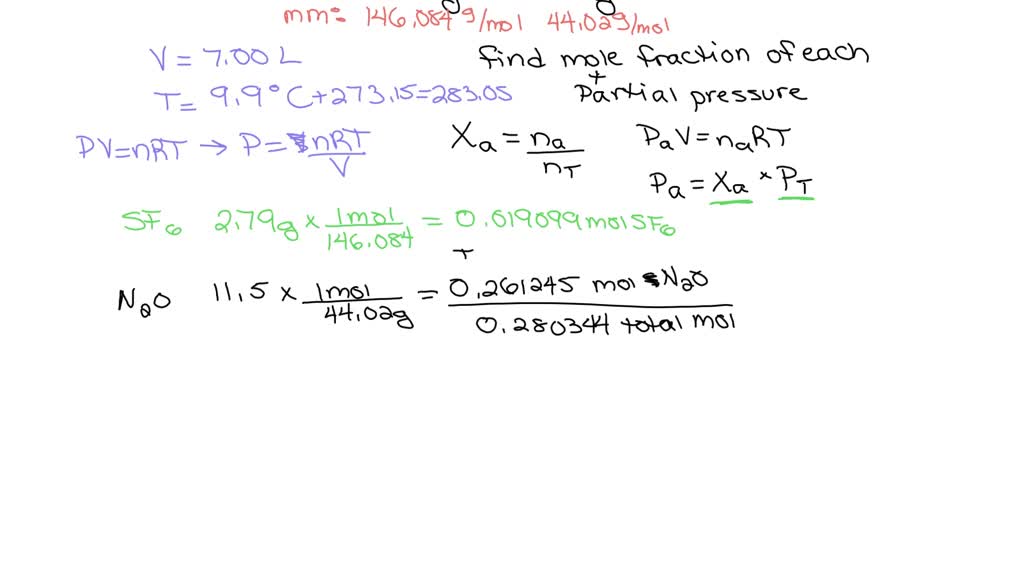 mm: 146.084 g/mol 44.02g/mol
V = 7.00 L find mole fraction of each
+
T = 9.9°C+273.15=283.05 Partial pressure
PV=nRT → P = nRT/V Xa = na/nT PaV=naRT
Pa = Xa × PT
SF6 2.79g × 1mol/146.084 = 0.019099 mol SF6
+
N2O 11.5 × 1mol/44.02g = 0.261245 mol N2O
0.280344 total mol